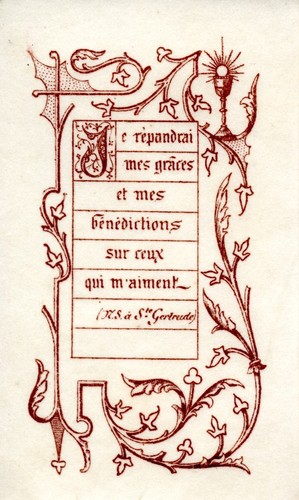 Je répandrai
mes grâces
et mes
bénédictions
sur ceux
qui m'aiment
(N.S. à Ste Gertrude)